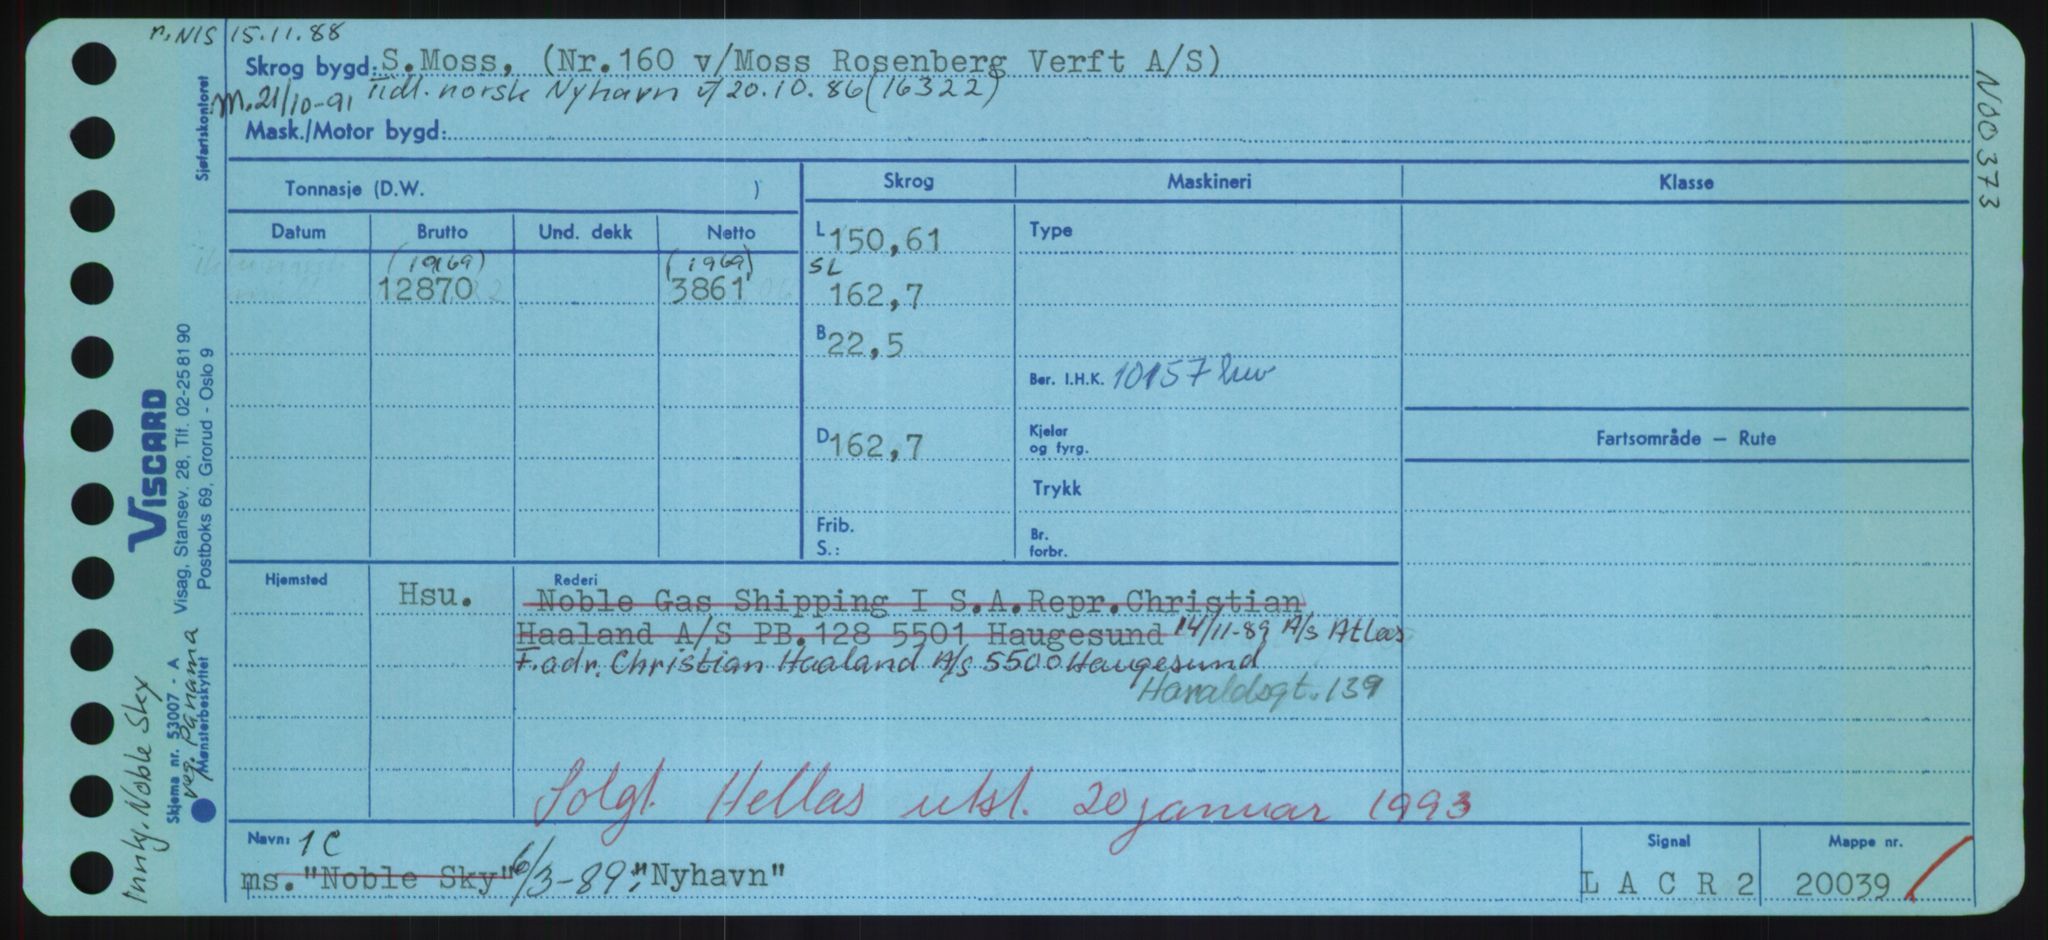 n. NIS 15.11.88
Skrog bygd: S.Moss, (Nr.160 v/Moss Rosenberg Verft A/S)
m. 21/10-91 Tidl. norsk Nyhavn t/ 20.10.86 (16322)
Mask./Motor bygd:
N00373
Tonnasje (D.W. )
Skrog Maskineri Klasse
Datum Brutto Und. dekk Netto
L 150,61 Type
(1969) (1969) SL
12870 3861 162,7
B 22,5
Ber. I.H.K. 10157 kw
D 162,7 Kjeler og fyrg.
Fartsområde — Rute
Trykk
Frib. S.: Br. forbr.
Hjemsted Hsu. Rederi
Noble Gas Shipping I S.A.Repr.Christian
Haaland A/S PB.128 5501 Haugesund 14/11-89 A/s Atlas
F.adr. Christian Haaland A/s 5500 Haugesund
Haraldsgt. 139
Solgt Hellas utst. 20 januar 1993
Navn: 1C Signal Mappe nr.
ms. "Noble Sky" 6/3-89: "Nyhavn" L A C R 2 20039
Sjøfartskontoret
VISCARD
Visag, Stansev. 28, Tlf. 02-25 81 90
Postboks 69, Grorud - Oslo 9
Skjema nr. 53007 - A
Mønsterbeskyttet
veg. Panama
Innkj. Noble Sky